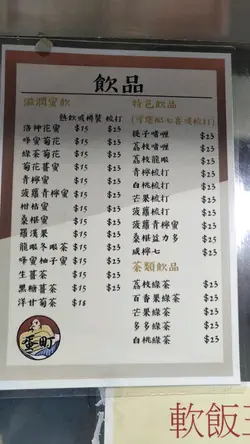 飲品
滋潤蜜飲
熱飲或樽裝 梳打
洛神花蜜 $15 $23
蜂蜜菊花 $15 $23
綠茶菊花 $15 $23
菊花薑蜜 $15 $23
青檸蜜 $15 $23
菠蘿青檸蜜 $15 $23
柑桔蜜 $15 $23
桑椹蜜 $15 $23
羅漢果 $15 $23
龍眼冬眠茶 $15 $23
蜂蜜柚子蜜 $15 $23
生薑茶 $15 $23
黑糖薑茶 $15 $23
洋甘菊茶 $18
特色飲品
桃子啫喱 $23
荔枝啫喱 $23
荔枝龍眼 $23
青檸梳打 $23
白桃梳打 $23
芒果梳打 $23
菠蘿梳打 $23
菠蘿青檸蜜 $23
桑椹益力多 $23
咸檸七 $23
茶類飲品
荔枝綠茶 $23
百香果綠茶 $23
芒果綠茶 $23
多多綠茶 $23
白桃綠茶 $23
蛋町
軟飯